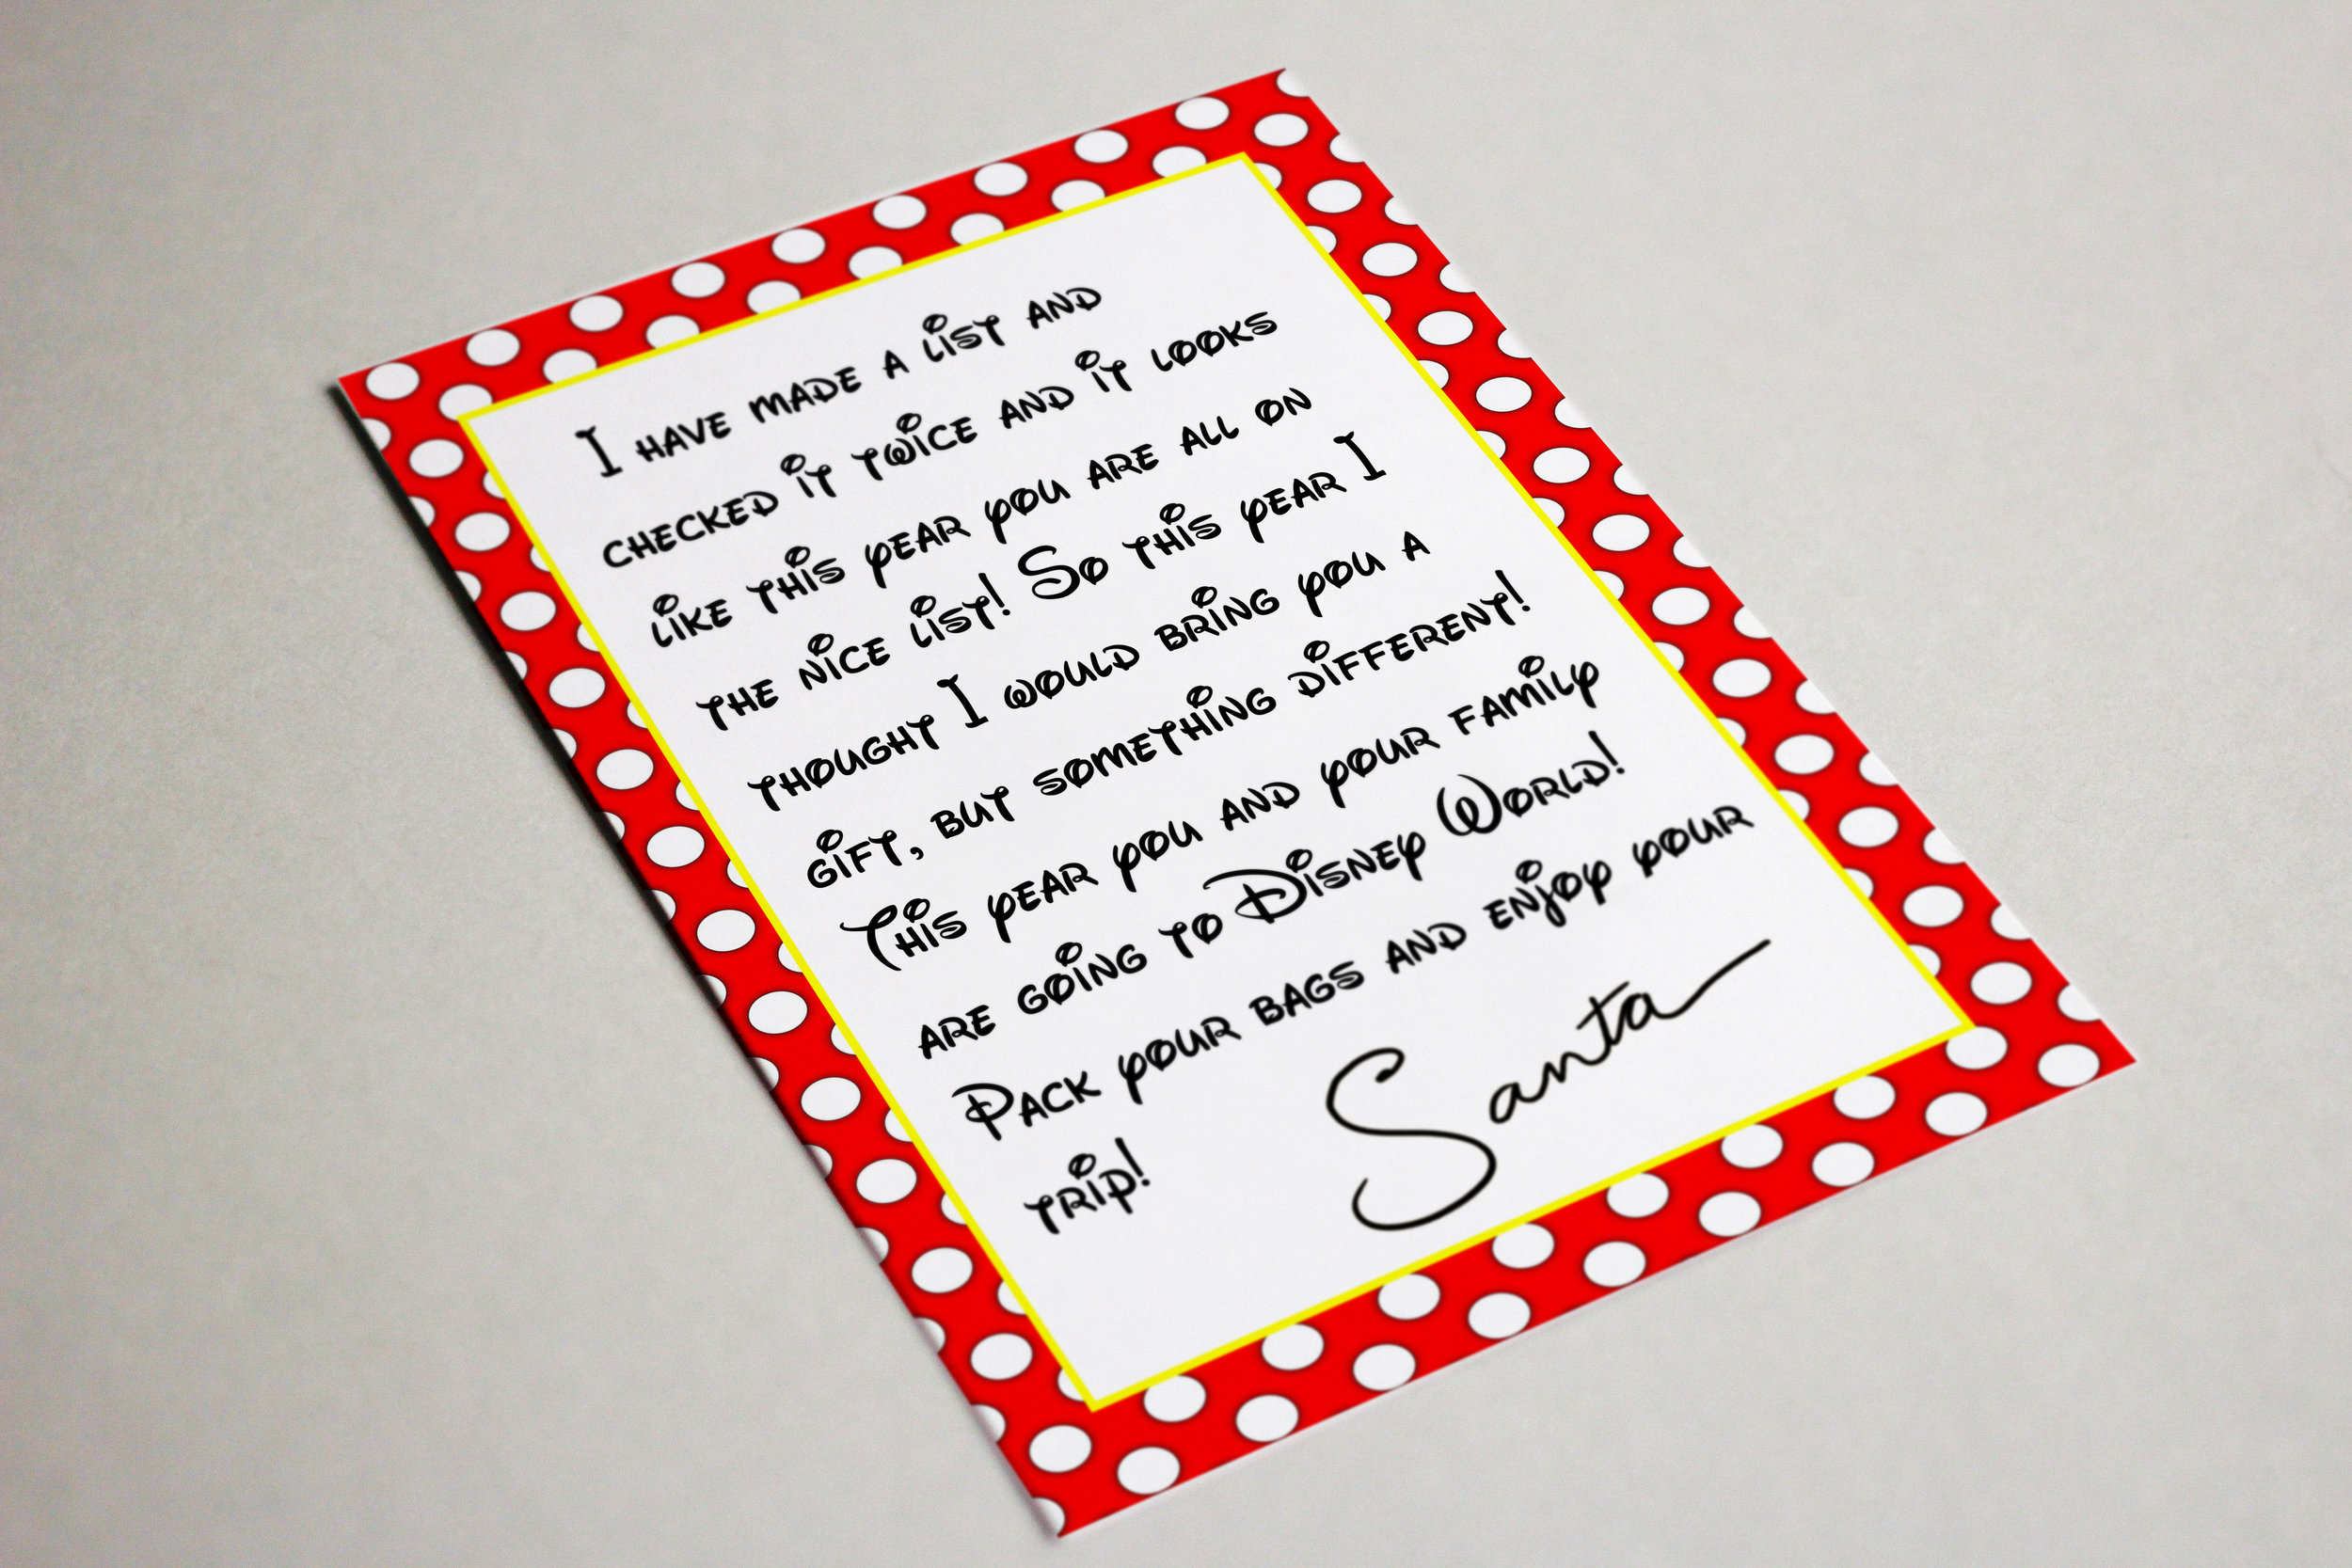 I have made a list and
checked it twice and it looks
like this year you are all on
the nice list! So this year I
thought I would bring you a
gift, but something different!
This year you and your family
are going to Disney World!
Pack your bags and enjoy your
trip!
Santa